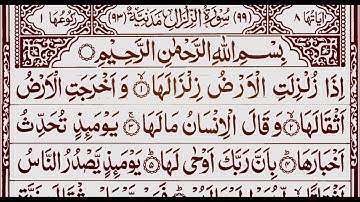 اٰیَاتُهَا ۸ (۹۹) سُوْرَةُ الزِّلْزَالِ مَدَنِیَّةٌ (۹۳) رُكُوْعُهَا ۱
بِسْمِ اللّٰهِ الرَّحْمٰنِ الرَّحِیْمِ
اِذَا زُلْزِلَتِ الْاَرْضُ زِلْزَالَهَا ۙ﴿۱﴾ وَ اَخْرَجَتِ الْاَرْضُ
اَثْقَالَهَا ۙ﴿۲﴾ وَ قَالَ الْاِنْسَانُ مَا لَهَا ۚ﴿۳﴾ یَوْمَئِذٍ تُحَدِّثُ
اَخْبَارَهَا ۙ﴿۴﴾ بِاَنَّ رَبَّكَ اَوْحٰى لَهَا ؕ﴿۵﴾ یَوْمَئِذٍ یَّصْدُرُ النَّاسُ